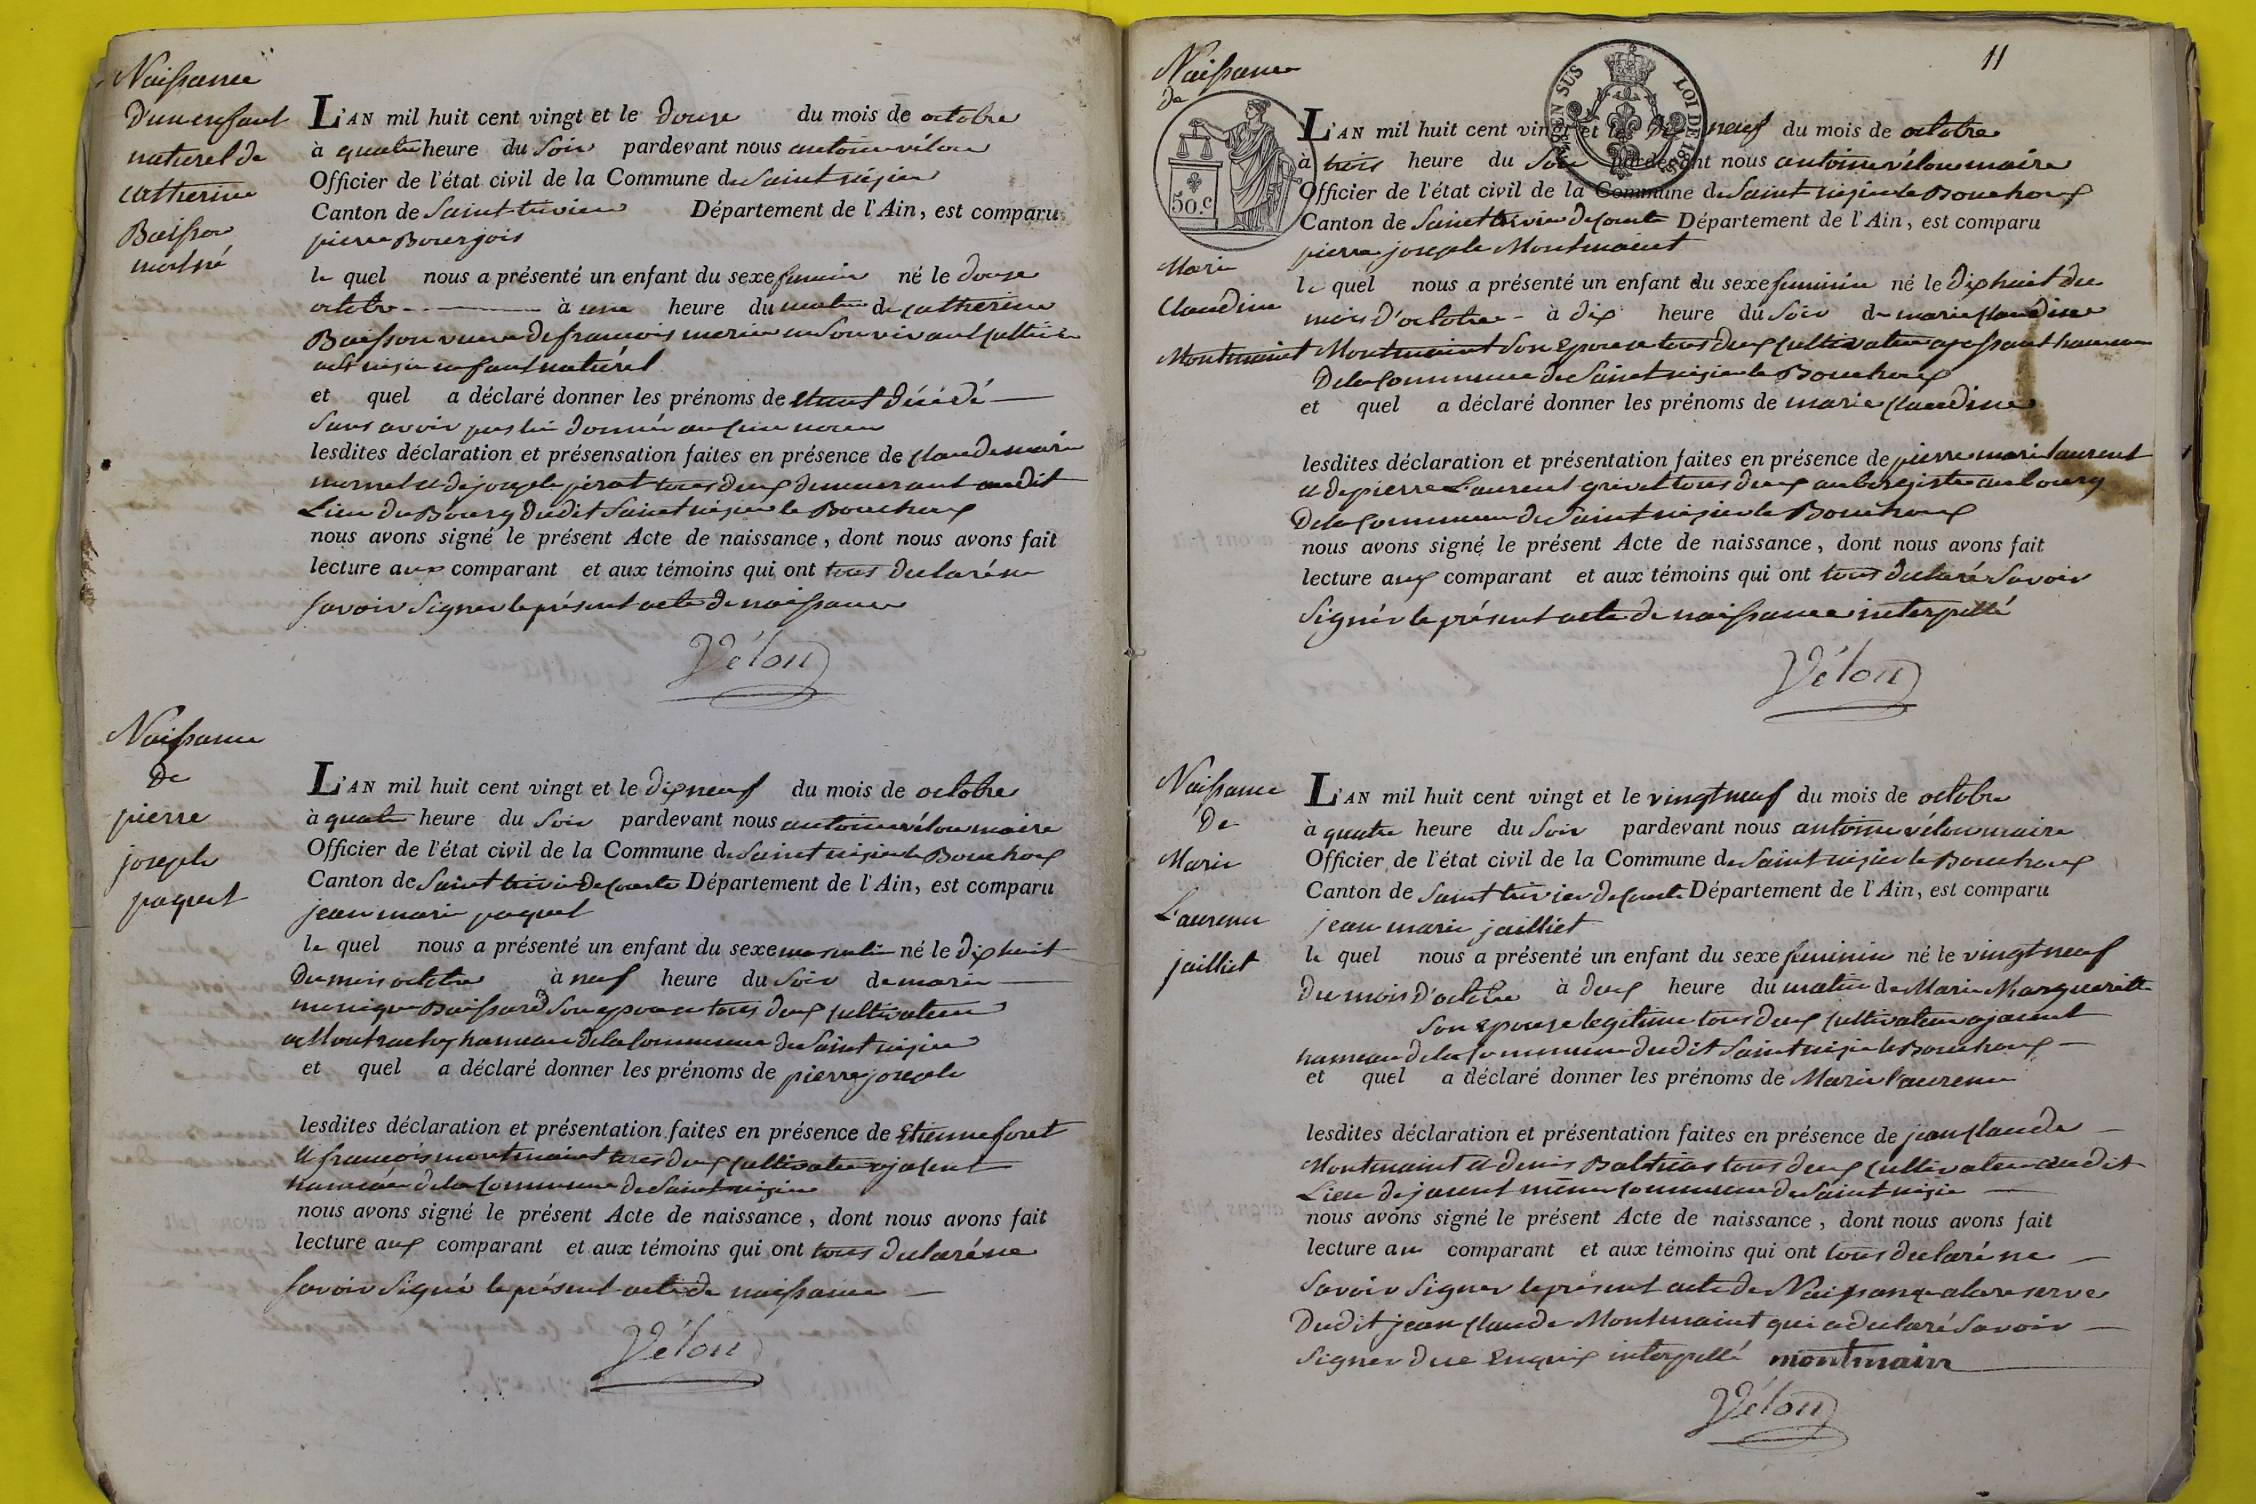 Naissance
d'un enfant
naturel de
catherine
Boisson
mort né
L'AN mil huit cent vingt et le douse du mois de octobre
à quatre heure du Soir pardevant nous antoine vélon
Officier de l'état civil de la Commune de Saint nizier
Canton de Saint trivier Département de l'Ain, est comparu
pierre Bourjois
le quel nous a présenté un enfant du sexe feminin né le douse
octobre à une heure du matin de catherine
Boisson veuve de francois en Son vivant
enfant naturél
et quel a déclaré donner les prénoms de etant décédé
Sans avoir donné aucun nom
lesdites déclaration et présensation faites en présence de claude marie
et de joseph tous deux demeurant audit
Lieu du Bourg dudit Saint nizier le Bouchoux
nous avons signé le présent Acte de naissance, dont nous avons fait
lecture aux comparant et aux témoins qui ont tous declaré ne
Savoir Signer le présent acte de naissance
Vélon
Naissance
De
pierre
joseph
paquet
L'AN mil huit cent vingt et le dix neuf du mois de octobre
à quatre heure du Soir pardevant nous antoine vélon maire
Officier de l'état civil de la Commune de Saint nizier le Bouchoux
Canton de Saint trivier de Courte Département de l'Ain, est comparu
jean marie paquet
le quel nous a présenté un enfant du sexe masculin né le dix huit
Du mois octobre à neuf heure du Soir de marie
monique Son epouse tous deux cultivateur
hameau de la Commune de Saint nizier
et quel a déclaré donner les prénoms de pierre joseph
lesdites déclaration et présentation faites en présence de Etienne foret
et francois montmaint tous deux cultivateur a jasent
hameau de la Commune de Saint nizier
nous avons signé le présent Acte de naissance, dont nous avons fait
lecture aux comparant et aux témoins qui ont tous declaré ne
Savoir Signé le présent acte de naissance
Vélon
11
Naissance
de
Marie
Claudine
Montmaint
50.c
EN SUS
LOI DE 1816
L'AN mil huit cent vingt et le Dix neuf du mois de octobre
à trois heure du Soir pardevant nous antoine vélon maire
Officier de l'état civil de la Commune de Saint nizier le Bouchoux
Canton de Saint trivier de Courte Département de l'Ain, est comparu
pierre joseph Montmaint
le quel nous a présenté un enfant du sexe feminin né le Dix huit du
mois D'octobre à dix heure du Soir de marie Claudine
Montmaint Son Epouse tous deux cultivateur hameau
De la Commune de Saint nizier le Bouchoux
et quel a déclaré donner les prénoms de marie Claudine
lesdites déclaration et présentation faites en présence de pierre marie laurent
et de pierre Laurent grivel tous deux aubergiste au bourg
De la Commune de Saint nizier le Bouchoux
nous avons signé le présent Acte de naissance, dont nous avons fait
lecture aux comparant et aux témoins qui ont tous declaré Savoir
Signér le présent acte de naissance interpellé
Vélon
Naissance
De
Marie
Laurence
jailliet
L'AN mil huit cent vingt et le vingt neuf du mois de octobre
à quatre heure du Soir pardevant nous antoine vélon maire
Officier de l'état civil de la Commune de Saint nizier le Bouchoux
Canton de Saint trivier de Courte Département de l'Ain, est comparu
jean marie jailliet
le quel nous a présenté un enfant du sexe feminin né le vingt neuf
Du mois D'octobre à deux heure du matin de Marie Margueritte
Son Epouse legitime tous deux cultivateur a jasent
hameau de la Commune dudit Saint nizier le Bouchoux
et quel a déclaré donner les prénoms de Marie Laurence
lesdites déclaration et présentation faites en présence de jean Claude
Montmaint et denis tous deux cultivateur audit
Lieu de jasent même Commune de Saint nizier
nous avons signé le présent Acte de naissance, dont nous avons fait
lecture au comparant et aux témoins qui ont tous declaré ne
Savoir Signer le présent acte de Naissance a la reserve
Dudit jean Claude Montmaint qui a declaré Savoir
Signer Due Enquis interpellé montmain
Vélon